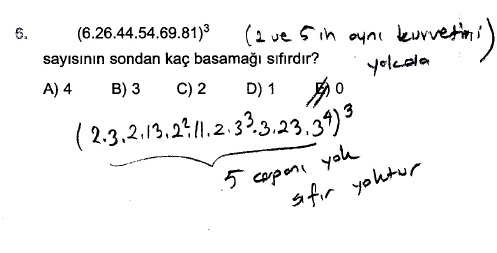 6. (6.26.44.54.69.81)³ (2 ve 5 in aynı kuvvetini)
sayısının sondan kaç basamağı sıfırdır? yokala
A) 4 B) 3 C) 2 D) 1 E) 0
(2.3.2.13.2².11.2.3³.3.23.3⁴)³
5 çarpanı yok
sıfır yoktur